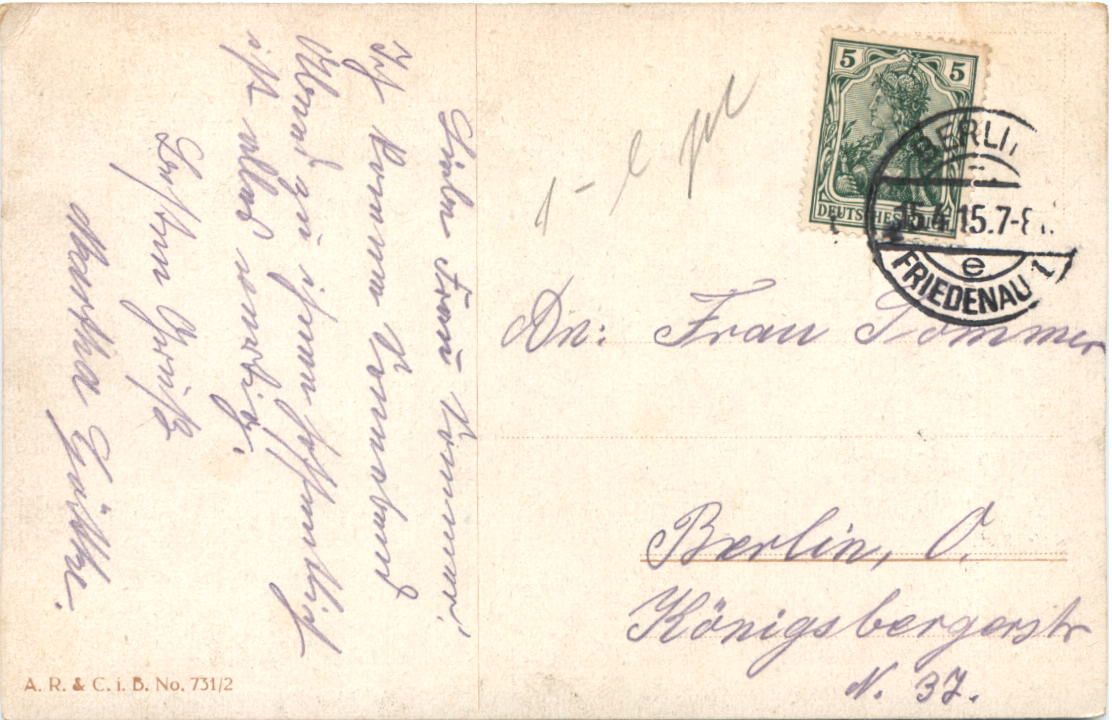 Liebe Frau Sommer!
Ich komme Sonnabend
Abend zu ihnen hoffentlich
ist alles
Besten Gruß
Martha
A. R. & C. i. B. No. 731/2
5 5
DEUTSCHES REICH
BERLIN
15.4.15.7-8
e
FRIEDENAU 1
An: Frau Sommer
Berlin, O.
Königsbergerstr
N. 37.